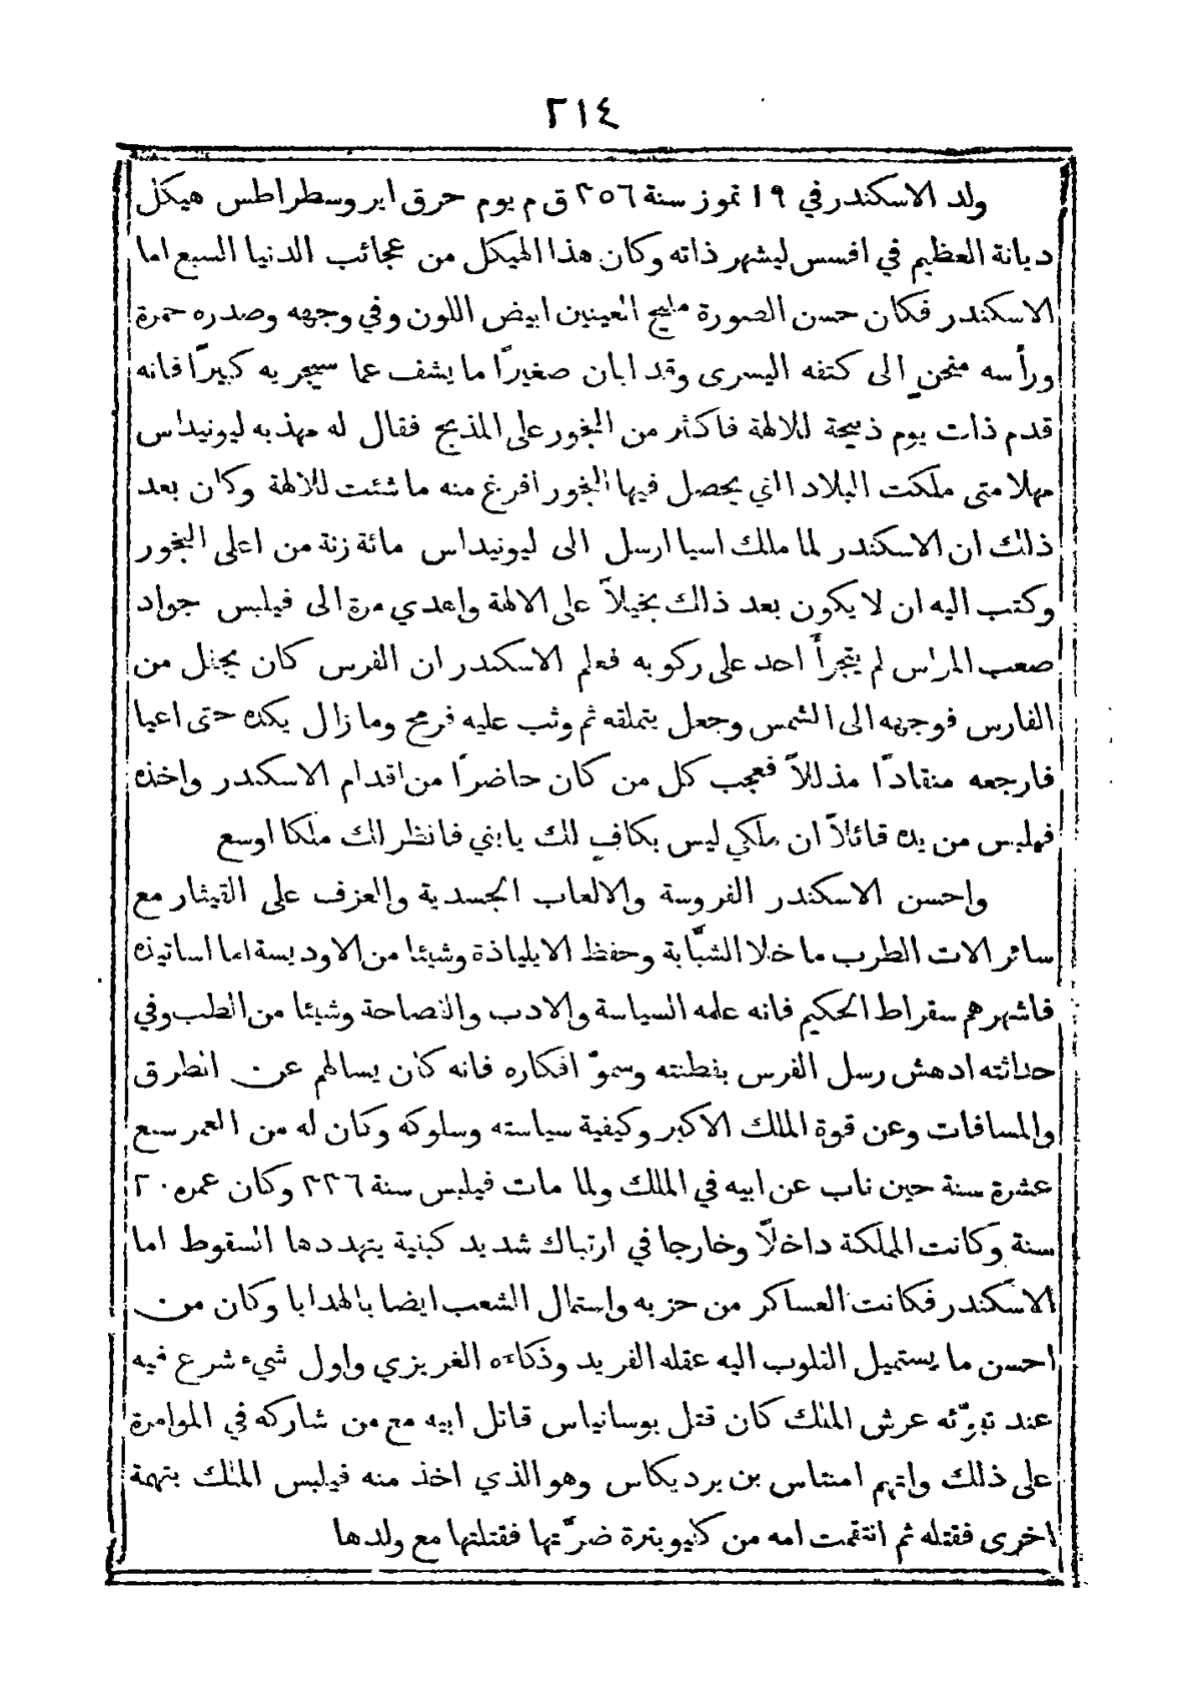 ٢١٤
ولد الاسكندر في ١٩ تموز سنة ٢٥٦ ق م يوم حرق ايروسطراطس هيكل
ديانة العظيم في افسس ليشهر ذاته وكان هذا الهيكل من عجائب الدنيا السبع اما
الاسكندر فكان حسن الصورة مليح العينين ابيض اللون وفي وجهه وصدره حمرة
ورأسه منحنٍ الى كتفه اليسرى وقد ابان صغيرًا ما يشف عما سيجريه كبيرًا فانه
قدم ذات يوم ذبيحة للالهة فاكثر من البخور على المذبح فقال له مهذبه ليونيداس
مهلا متى ملكت البلاد التي يحصل فيها البخور افرغ منه ما شئت للالهة وكان بعد
ذلك ان الاسكندر لما ملك اسيا ارسل الى ليونيداس مائة زنة من اعلى البخور
وكتب اليه ان لا يكون بعد ذلك بخيلاً على الالهة واهدي مرة الى فيلبس جواد
صعب المراس لم يتجرأ احد على ركوبه فعلم الاسكندر ان الفرس كان يجفل من
الفارس فوجهه الى الشمس وجعل يتملقه ثم وثب عليه فرمح وما زال يكده حتى اعيا
فارجعه منقادًا مذللاً فعجب كل من كان حاضرًا من اقدام الاسكندر واخذه
فيلبس من يده قائلاً ان ملكي ليس بكافٍ لك يا بني فانظر لك ملكا اوسع
واحسن الاسكندر الفروسة والالعاب الجسدية والعزف على القيثار مع
سائر الات الطرب ما خلا الشبَّابة وحفظ الايلياذة وشيئا من الاوديسة اما اساتيذه
فاشهرهم سقراط الحكيم فانه علمه السياسة والادب والفصاحة وشيئا من الطب وفي
حداثته ادهش رسل الفرس بفطنته وسموّ افكاره فانه كان يسالهم عن الطرق
والمسافات وعن قوة الملك الاكبر وكيفية سياسته وسلوكه وكان له من العمر سبع
عشرة سنة حين ناب عن ابيه في الملك ولما مات فيلبس سنة ٢٢٦ وكان عمره ٢٠
سنة وكانت المملكة داخلاً وخارجا في ارتباك شديد كبنية يتهددها السقوط اما
الاسكندر فكانت العساكر من حزبه واستمال الشعب ايضا بالهدايا وكان من
احسن ما يستميل القلوب اليه عقله الفريد وذكاءه الغريزي واول شيء شرع فيه
عند تبوّئه عرش الملك كان قتل بوسانياس قاتل ابيه مع من شاركه في الموامرة
على ذلك واتهم امنتاس بن برديكاس وهو الذي اخذ منه فيلبس الملك بتهمة
اخرى فقتله ثم انتقمت امه من كليوبترة ضرَّتها فقتلتها مع ولدها